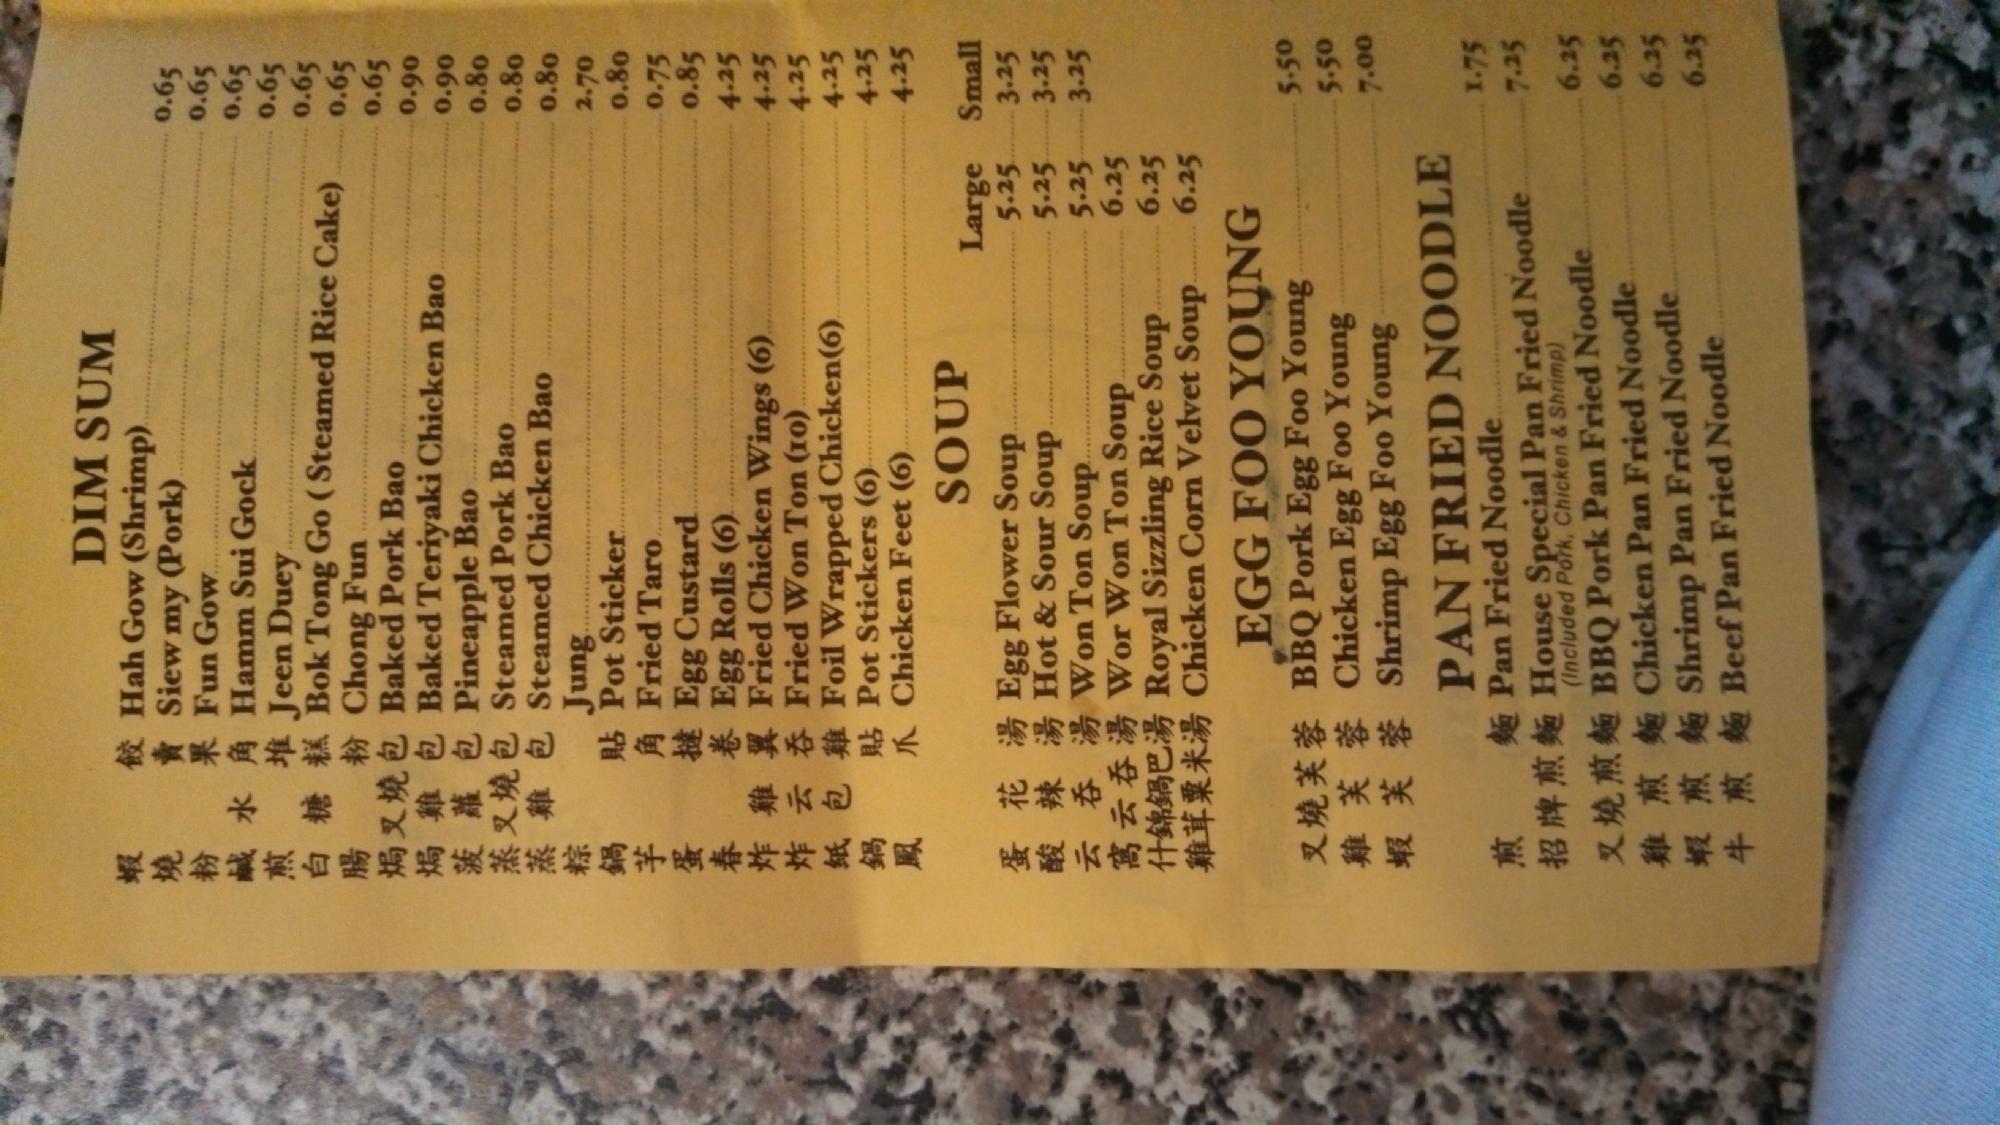 DIM SUM
蝦餃 Hah Gow (Shrimp) 0.65
燒賣 Siew my (Pork) 0.65
粉果 Fun Gow 0.65
鹹水角 Hamm Sui Gock 0.65
煎堆 Jeen Duey 0.65
白糖糕 Bok Tong Go ( Steamed Rice Cake) 0.65
腸粉 Chong Fun 0.65
焗叉燒包 Baked Pork Bao 0.90
焗雞包 Baked Teriyaki Chicken Bao 0.90
菠蘿包 Pineapple Bao 0.80
蒸叉燒包 Steamed Pork Bao 0.80
蒸雞包 Steamed Chicken Bao 0.80
粽 Jung 2.70
鍋貼 Pot Sticker 0.80
芋角 Fried Taro 0.75
蛋撻 Egg Custard 0.85
春卷 Egg Rolls (6) 4.25
炸雞翼 Fried Chicken Wings (6) 4.25
炸云吞 Fried Won Ton (10) 4.25
紙包雞 Foil Wrapped Chicken(6) 4.25
鍋貼 Pot Stickers (6) 4.25
鳳爪 Chicken Feet (6) 4.25
SOUP
Large Small
蛋花湯 Egg Flower Soup 5.25 3.25
酸辣湯 Hot & Sour Soup 5.25 3.25
云吞湯 Won Ton Soup 5.25 3.25
窩云吞湯 Wor Won Ton Soup 6.25
什錦鍋巴湯 Royal Sizzling Rice Soup 6.25
雞茸粟米湯 Chicken Corn Velvet Soup 6.25
EGG FOO YOUNG
叉燒芙蓉 BBQ Pork Egg Foo Young 5.50
雞芙蓉 Chicken Egg Foo Young 5.50
蝦芙蓉 Shrimp Egg Foo Young 7.00
PAN FRIED NOODLE
煎麵 Pan Fried Noodle 1.75
招牌煎麵 House Special Pan Fried Noodle 7.25
(Included Pork, Chicken & Shrimp)
叉燒煎麵 BBQ Pork Pan Fried Noodle 6.25
雞煎麵 Chicken Pan Fried Noodle 6.25
蝦煎麵 Shrimp Pan Fried Noodle 6.25
牛煎麵 Beef Pan Fried Noodle 6.25